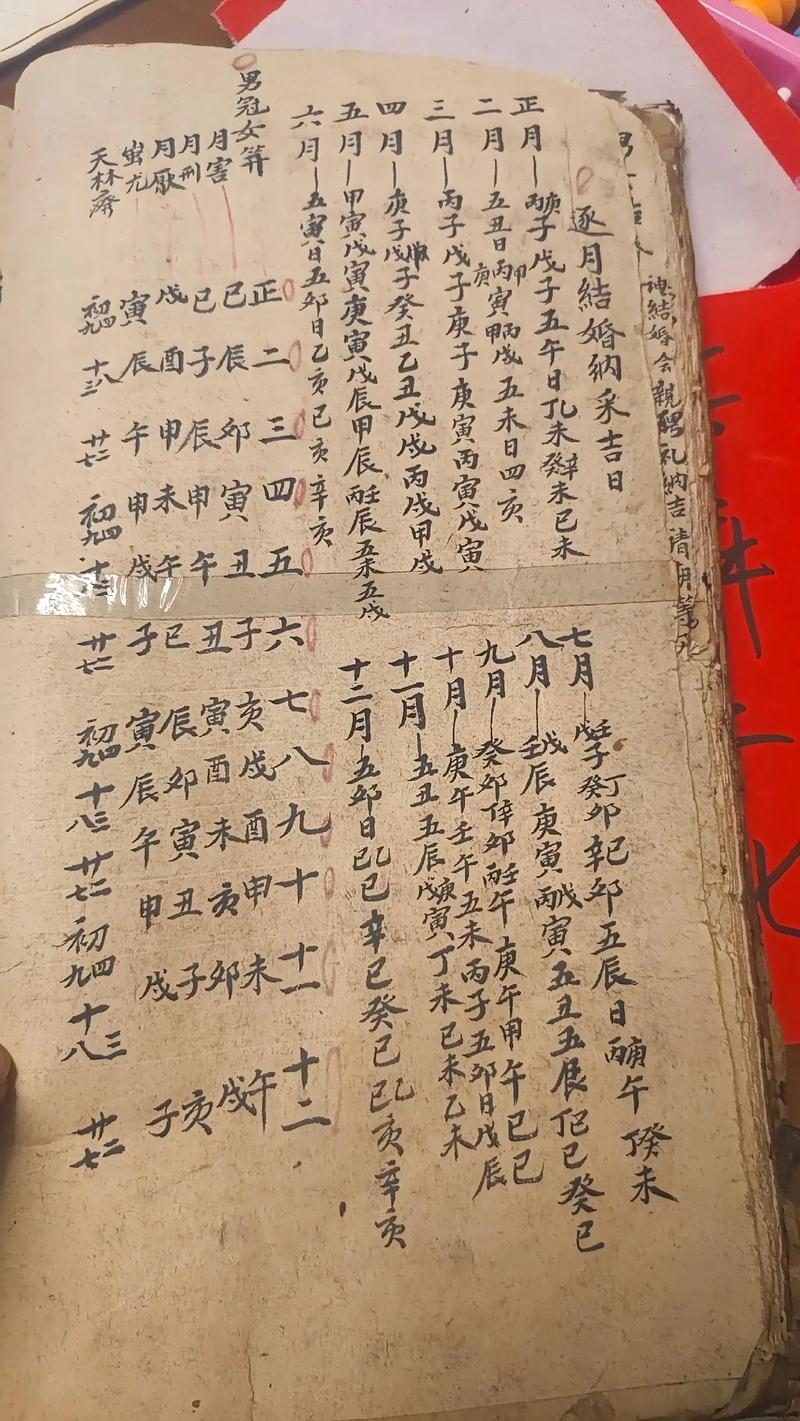 結婚会親醮礼納吉請月等
逐月結婚納采吉日
正月丙庚子戊子五午日丁乙未癸辛未己未
二月五丑日丙甲庚寅甲丙戌五未日四亥
三月丙子戊子庚子庚寅丙寅戊寅
四月庚子戊子癸丑乙丑戊戌丙戌甲戌
五月甲寅戊寅庚寅戊辰甲辰丙壬辰五未五戌
六月五寅日五卯日乙亥己亥辛亥
七月戊壬子癸丁卯辛己卯五辰日丙庚午丁癸未
八月壬戊辰庚寅丙戊寅五丑五辰丁己巳癸巳
九月癸卯辛卯丙壬午庚午甲午己巳
十月庚午壬午五未丙子五卯日戊辰
十一月五丑五辰戊庚寅丁未己未乙未
十二月五卯日己乙巳辛巳癸巳己乙亥辛亥
男冠女笄
正二三四五六七八九十十一十二
月害巳辰卯寅丑子亥戌酉申未午
月刑巳子辰申午丑寅酉未亥卯戌
月厭戌酉申未午巳辰卯寅丑子亥
蚩尤寅辰午申戌子寅辰午申戌子
天林疹初四九十三八廿二七初四九十三八廿二七初四九十三八廿二七初四九十三八廿二七